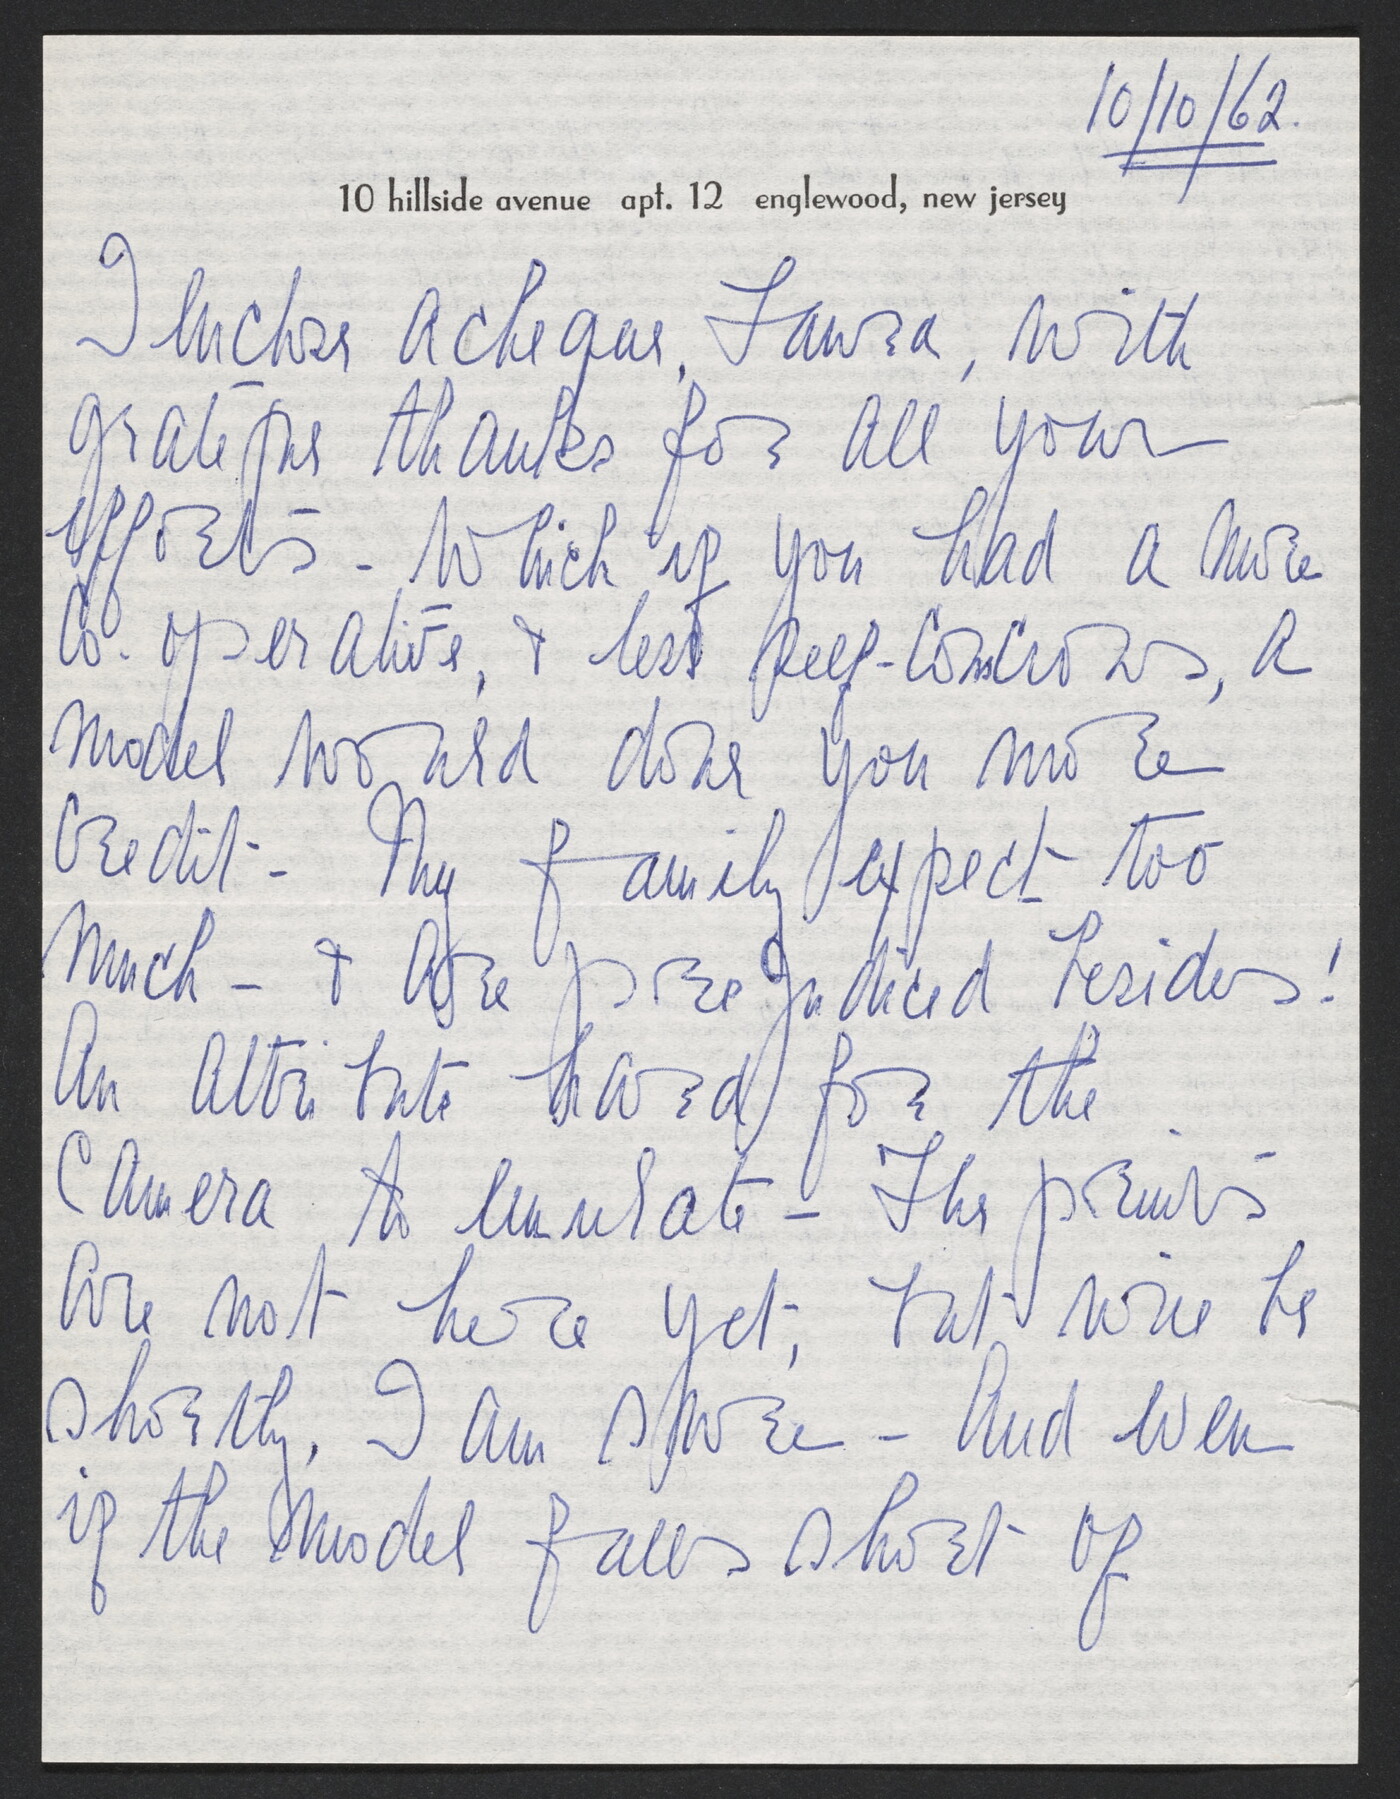 10/10/62.
10 hillside avenue apt. 12 englewood, new jersey
I enclose a cheque, Laura, with
grateful thanks for all your
efforts - Which if you had a more
Co-operative, & less self-conscious, a
model would done you more
credit - My family expect too
much - & are prejudiced besides!
An attribute hard for the
camera to emulate - The prints
are not here yet, but will be
shortly, I am sure - And even
if the model falls short of